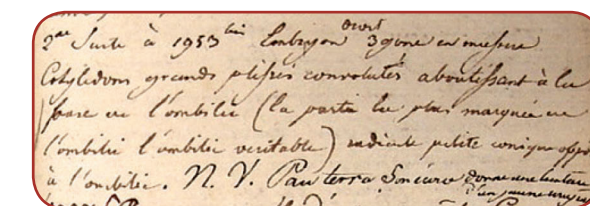 2de Suite à 1953 bis Embryon droit 3gone en mesure
Cotyledons grands plissés convolutés aboutissant à la
base ou l'ombilic (la partie la plus marquée ou
l'ombilic l'ombilic veritable) radicule petite conique oppo
à l'ombilic. N. V. Pau terra Sincura donne une teinture
d'un jaune